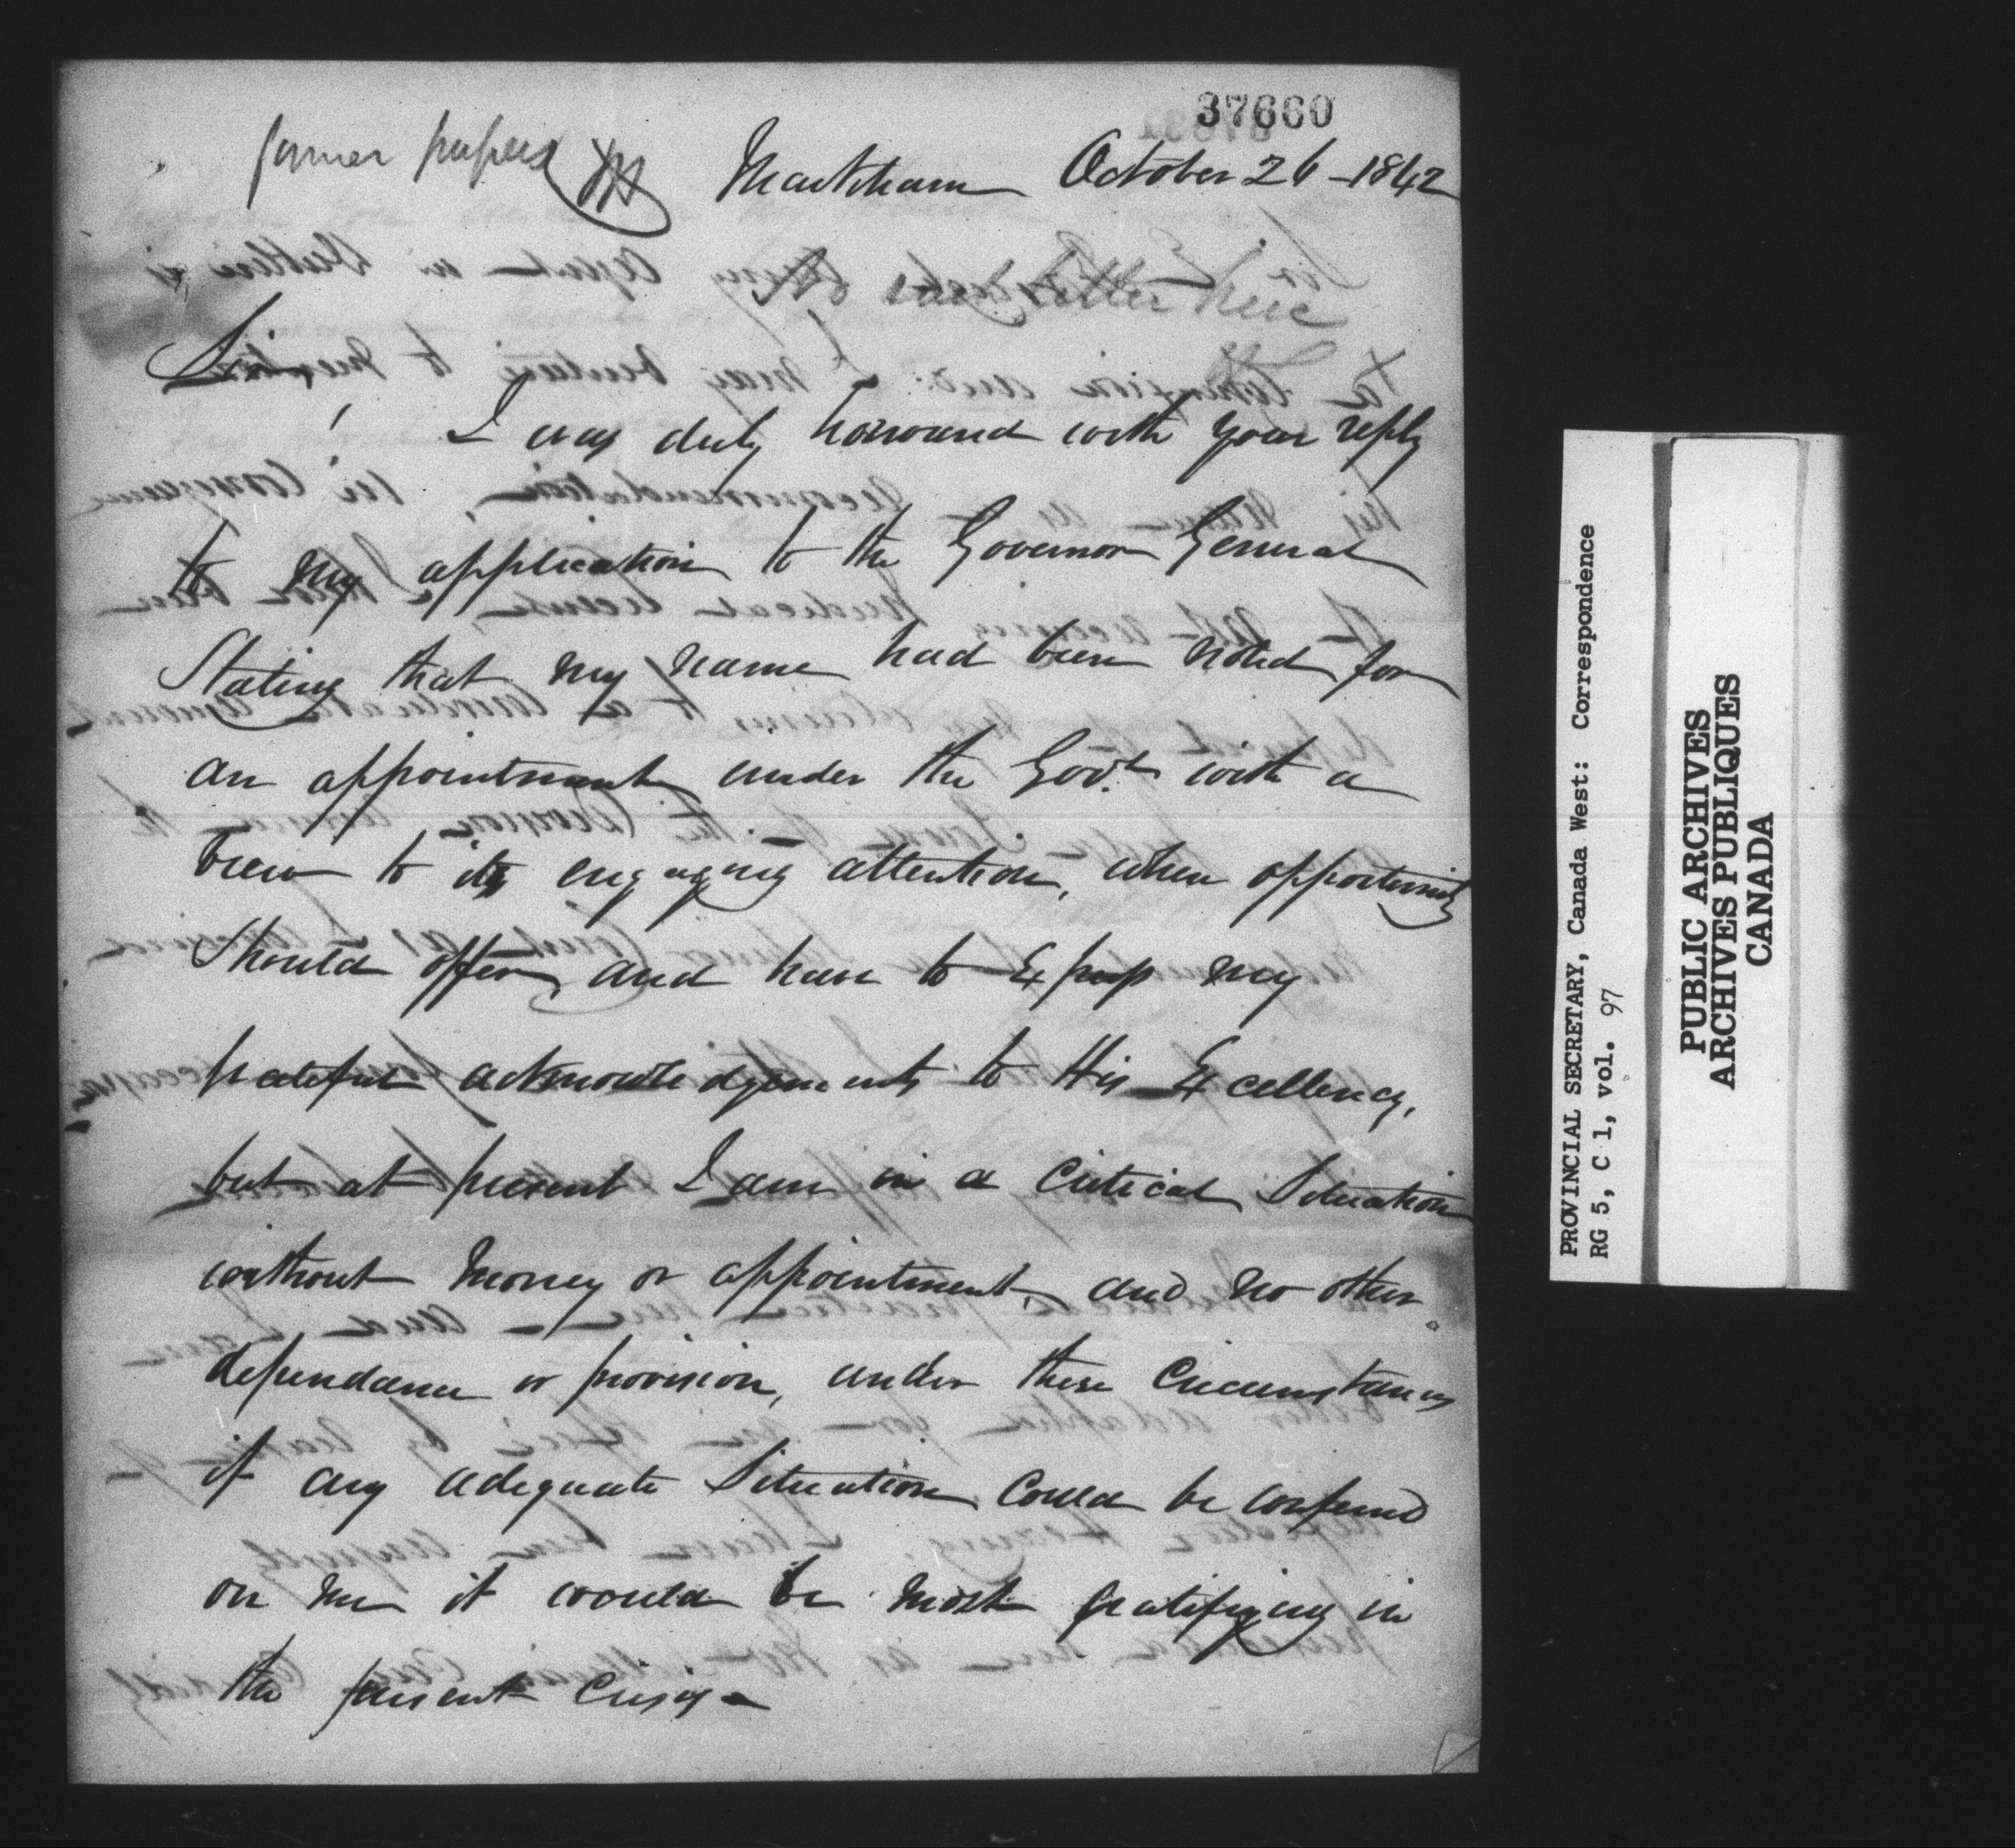 37660
former papers
Markham October 26 - 1842
last letter here
Sir,
I was duly honoured with your reply
to my application to the Governor General
Stating that my name had been noted for
an appointment under the Govt. with a
view to its engaging attention, when opportunity
Should offer, and have to Express my
grateful acknowledgements to His Excellency,
but at present I am in a Critical Situation
without money or appointment, and no other
dependance or provision, under these Circumstances
if any adequate Situation Could be conferred
on me it would be most gratifying in
the present Crisis -
PROVINCIAL SECRETARY, Canada West: Correspondence
RG 5, C 1, vol. 97
PUBLIC ARCHIVES
ARCHIVES PUBLIQUES
CANADA